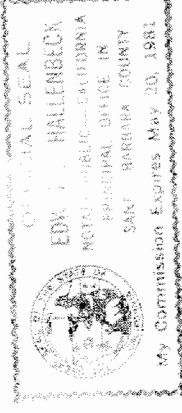 OFFICIAL SEAL
EDW. HALLENBECK
NOTARY PUBLIC - CALIFORNIA
PRINCIPAL OFFICE IN
SANTA BARBARA COUNTY
My Commission Expires May 20, 1981